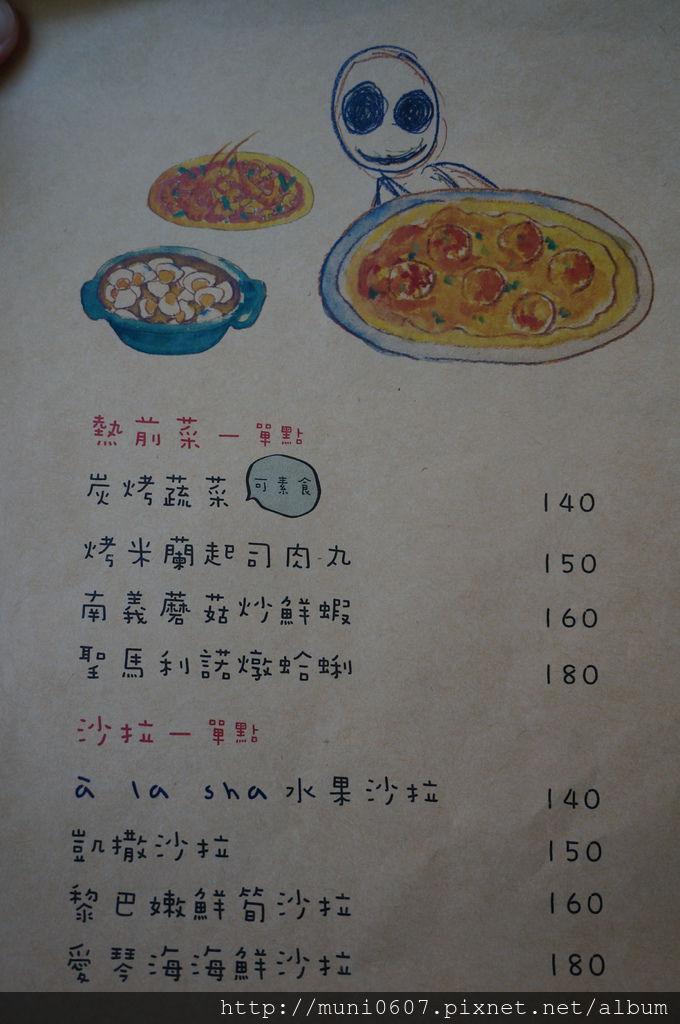 熱前菜－單點
炭烤蔬菜 可素食 140
烤米蘭起司肉丸 150
南義蘑菇炒鮮蝦 160
聖馬利諾燉蛤蜊 180
沙拉－單點
à la sha 水果沙拉 140
凱撒沙拉 150
黎巴嫩鮮筍沙拉 160
愛琴海海鮮沙拉 180
http://muni0607.pixnet.net/album